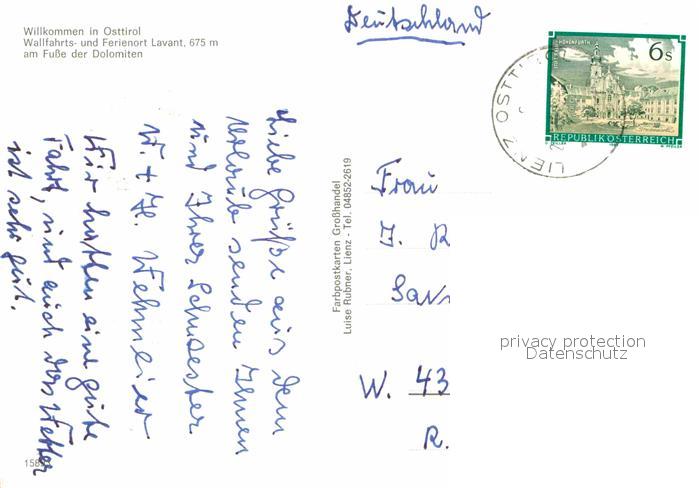 Willkommen in Osttirol
Wallfahrts- und Ferienort Lavant, 675 m
am Fuße der Dolomiten
Deutschland
STIFT REIN-HOHENFURTH
6s
REPUBLIK ÖSTERREICH
LIENZ OSTTIROL
Liebe Grüße aus dem
Urlaub senden Ihnen
und Ihrer Schwester
W. + H.
Wir hatten eine gute
Fahrt, und auch das Wetter
ist sehr gut.
Farbpostkarten Großhandel
Luise Rubner, Lienz - Tel. 04852-2619
Frau
J. R
W. 43
R.
privacy protection
Datenschutz